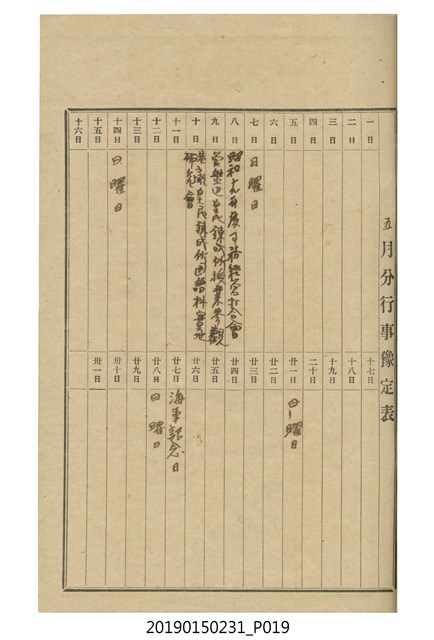 五月分行事豫定表
一日
二日
三日
四日
五日
六日
七日 日曜日
八日 昭和十九年度事務經營打合會
九日 皇民鍊成所授業參觀
十日 皇民鍊成所國語科實地
研究會
十一日
十二日
十三日
十四日 日曜日
十五日
十六日
十七日
十八日
十九日
二十日
廿一日 日曜日
廿二日
廿三日
廿四日
廿五日
廿六日
廿七日 海軍記念日
廿八日 日曜日
廿九日
卅十日
卅一日
20190150231_P019